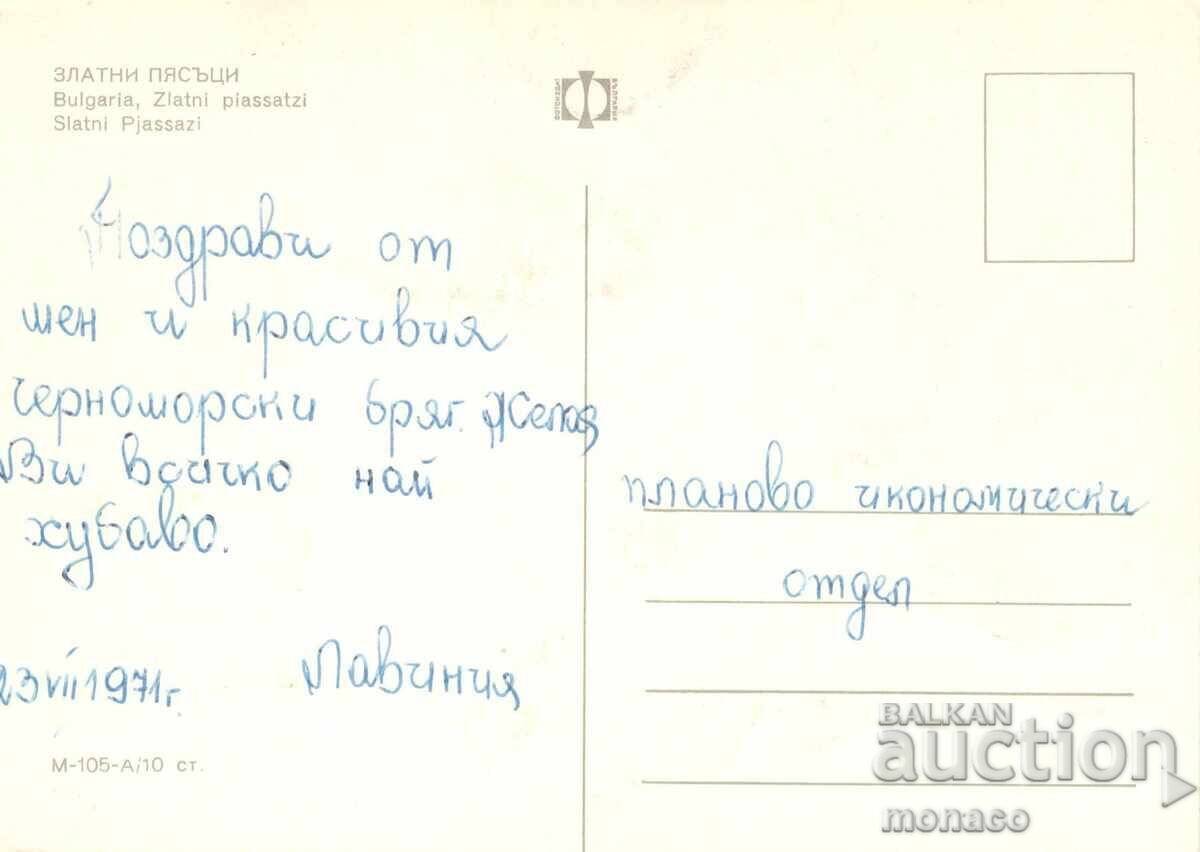 ЗЛАТНИ ПЯСЪЦИ
Bulgaria, Zlatni piassatzi
Slatni Pjassazi
ФОТОИЗДАТ
БЪЛГАРИЯ
Поздрави от
мен и красивия
черноморски бряг. Желая
Ви всичко най
хубаво.
23 VII 1971 г.
Лавиния
М-105-А/10 ст.
планово икономически
отдел
BALKAN
auction
monaco